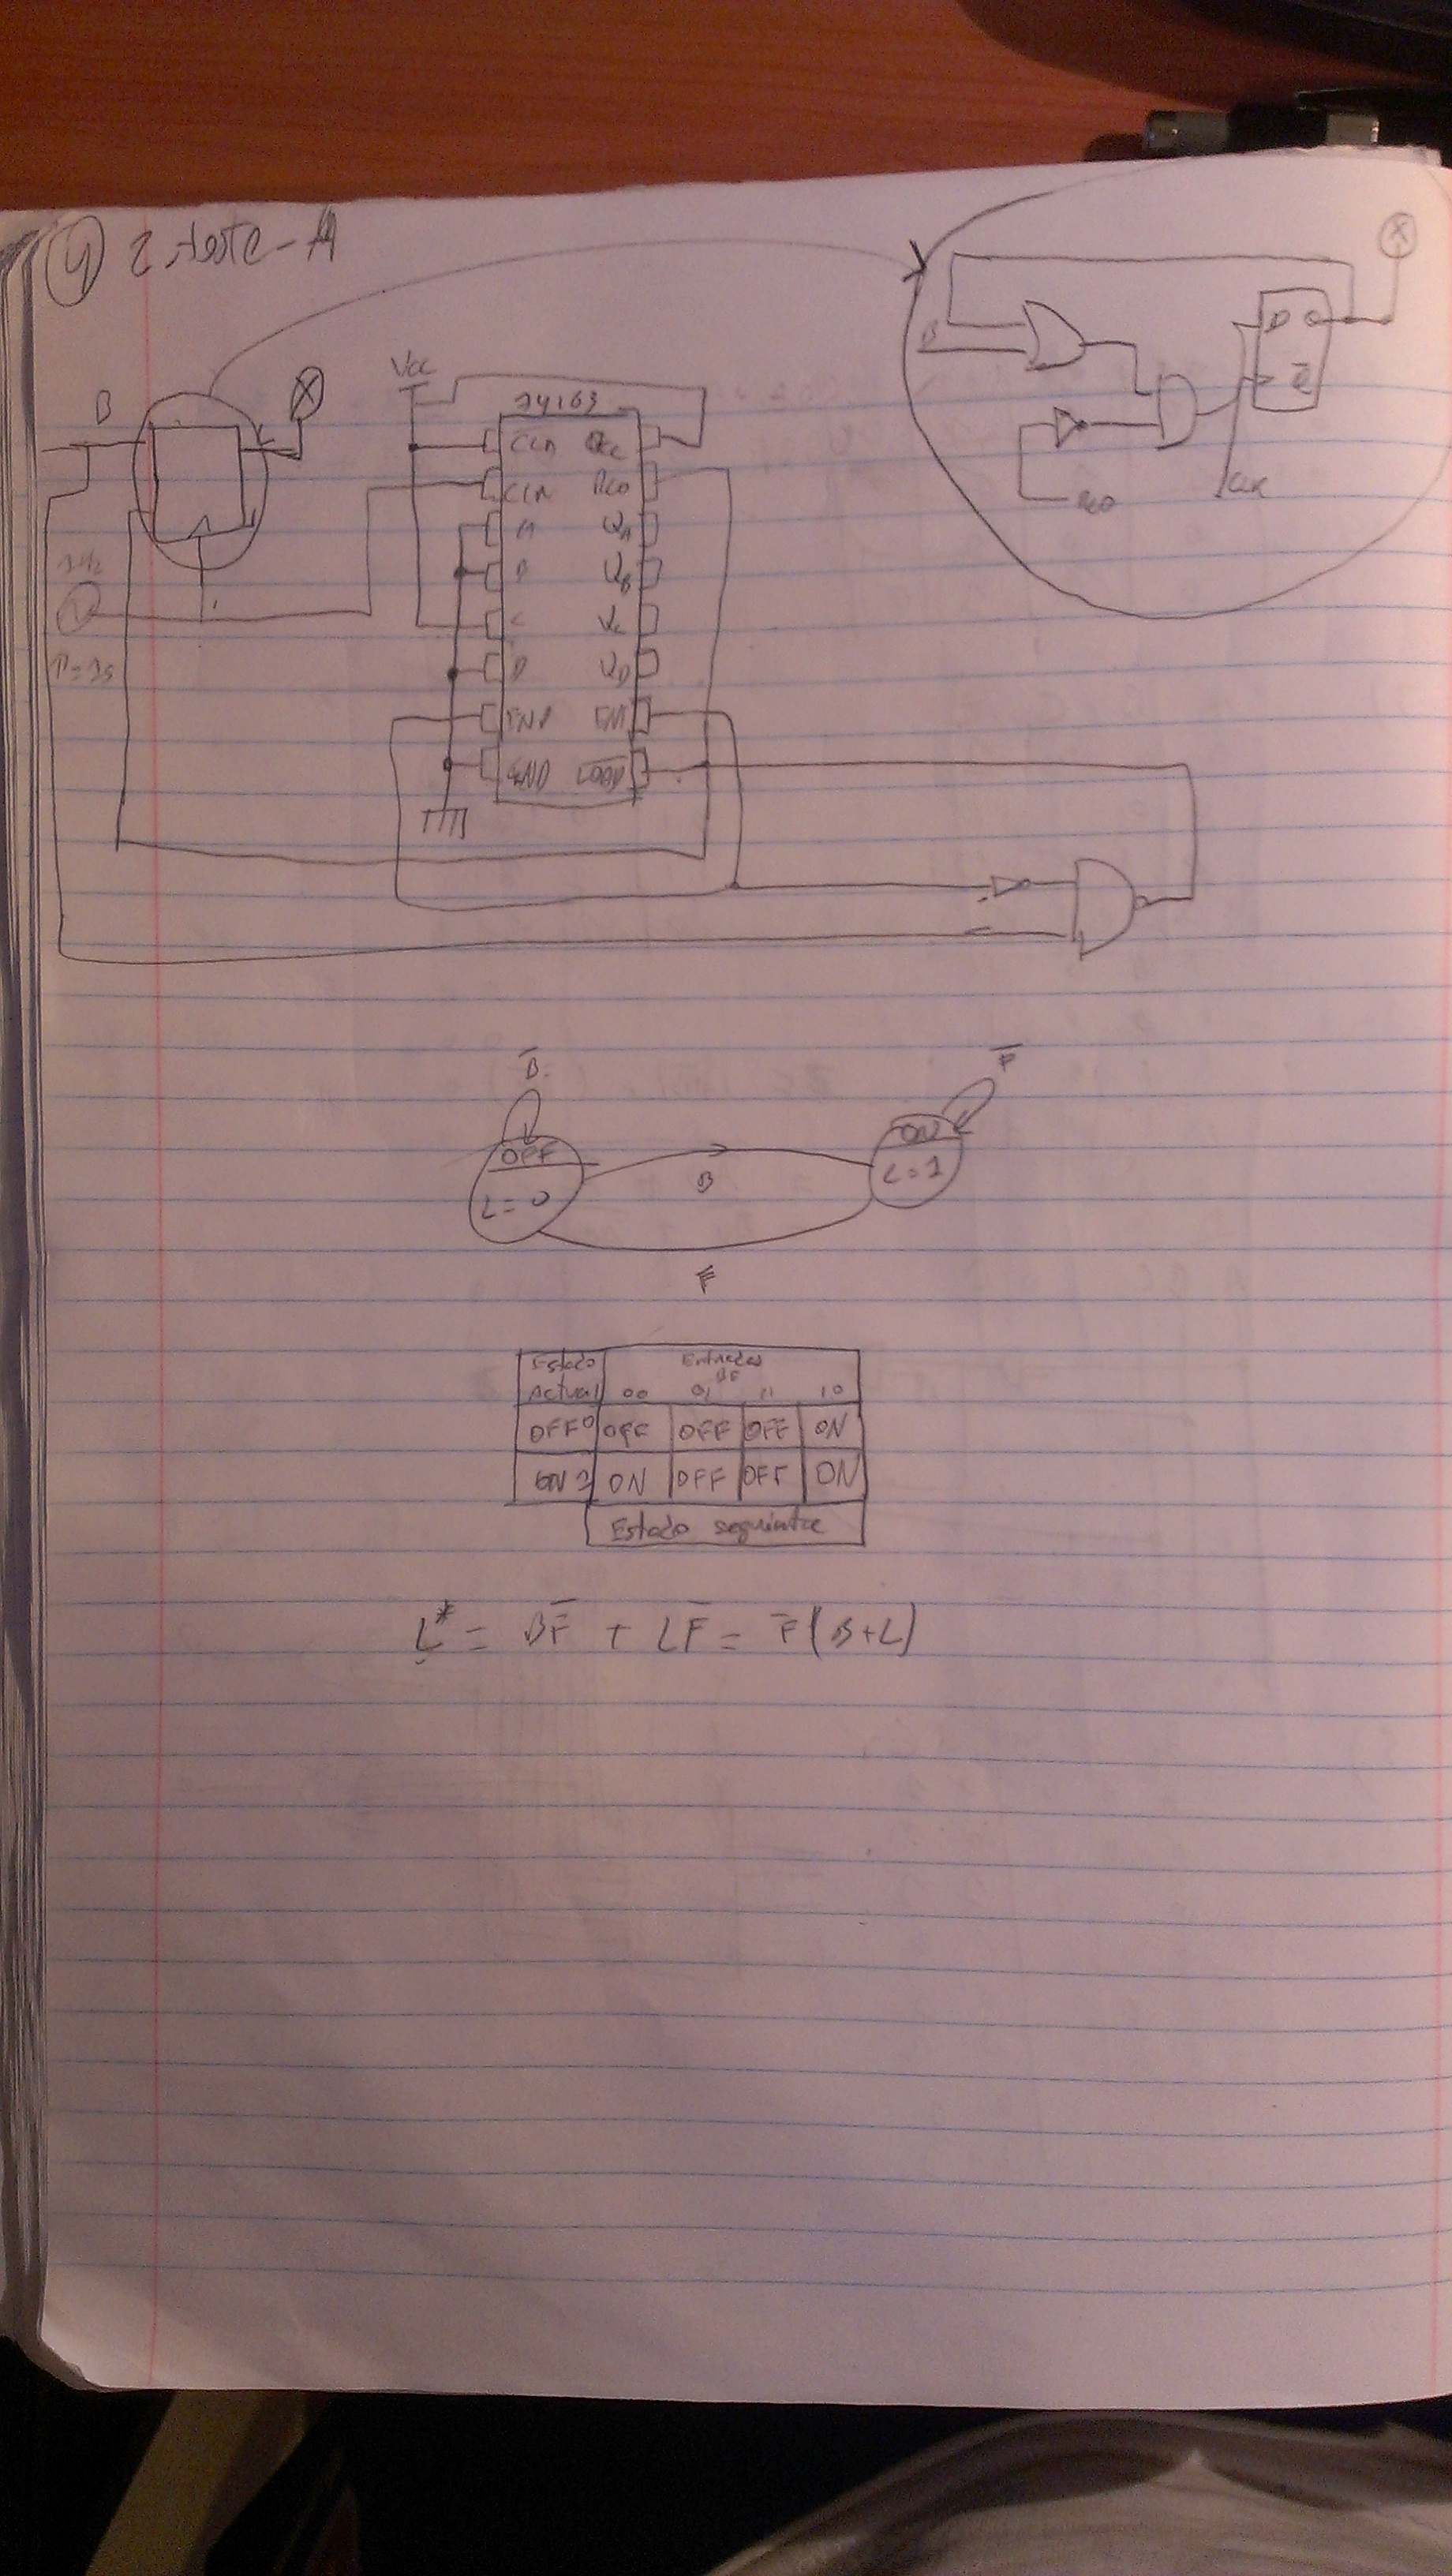 4) 2.teste-A
B
Vcc
74163
CLR Vcc
CLK RCO
A QA
B QB
C QC
D QD
ENP ENT
GND LOAD
1Hz
T=1s
B
D Q
Q̅
RCO
CLK
B̅
F̅
OFF
L=0
B
ON
L=1
F
Estado Entradas
BF
Actual 00 01 11 10
OFF 0 OFF OFF OFF ON
ON 1 ON OFF OFF ON
Estado seguinte
L* = BF̅ + LF̅ = F̅(B+L)